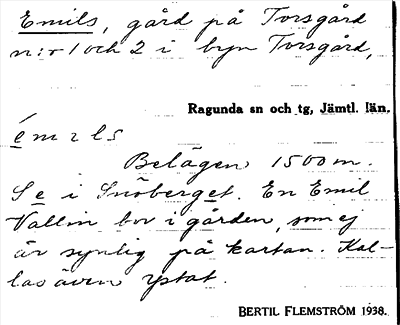 Emils, gård på Torsgård
n:r 1 och 2 i byn Torsgård,
Ragunda sn och tg, Jämtl. län.
é m ɩ l s
Belägen 1500 m.
S e i Snöberget. En Emil
Vallin bor i gården, som ej
är synlig på kartan. Kal-
las även Ystat.
BERTIL FLEMSTRÖM 1938.